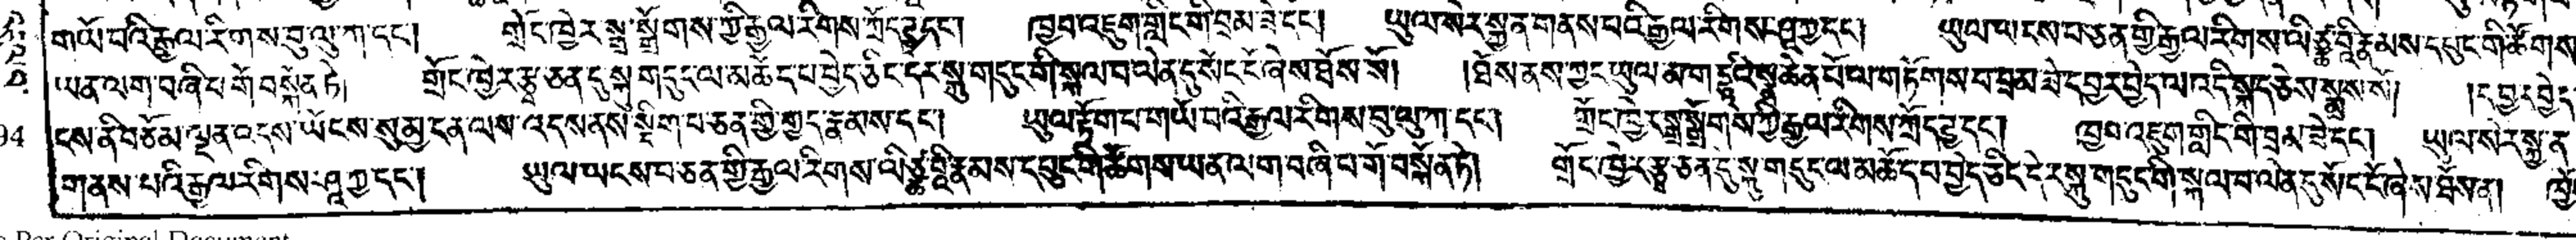 གཡོ་བའི་རྒྱལ་རིགས་བུ་ལུ་ཀ་དང་། གྲོང་ཁྱེར་སྒྲ་སྒྲོགས་ཀྱི་རྒྱལ་རིགས་ཀྲོད་ཏྱ་དང་། ཁྱབ་འཇུག་གླིང་གི་བྲམ་ཟེ་དང་། ཡུལ་སེར་སྐྱ་ན་གནས་པའི་རྒྱལ་རིགས་ཤཱཀྱ་དང་། ཡུལ་ཡངས་པ་ཅན་གྱི་རྒྱལ་རིགས་ལི་ཙྪ་བཱི་རྣམས་དཔུང་གི་ཚོགས་
ཡན་ལག་བཞི་པ་གོ་བསྐོན་ཏེ། གྲོང་ཁྱེར་རྩྭ་ཅན་དུ་སྐུ་གདུང་ལ་མཆོད་པ་བྱེད་ཅིང་དེར་སྐུ་གདུང་གི་སྐལ་བ་ལེན་དུ་སོང་ངོ་ཞེས་ཐོས་སོ། །ཐོས་ནས་ཀྱང་ཡུལ་མ་ག་དྷཱའི་སྣ་ཆེན་པོ་ལ་གཏོགས་པ་བྲམ་ཟེ་དབྱར་བྱེད་ལ་འདི་སྐད་ཅེས་སྨྲས་སོ། །དབྱར་བྱེད་
ངས་ནི་བཅོམ་ལྡན་འདས་ཡོངས་སུ་མྱ་ངན་ལས་འདས་ནས་སྡིག་པ་ཅན་གྱི་གྱད་རྣམས་དང་། ཡུལ་རྟོག་པ་གཡོ་བའི་རྒྱལ་རིགས་བུ་ལུ་ཀ་དང་། གྲོང་ཁྱེར་སྒྲ་སྒྲོགས་ཀྱི་རྒྱལ་རིགས་ཀྲོད་ཏྱ་དང་། ཁྱབ་འཇུག་གླིང་གི་བྲམ་ཟེ་དང་། ཡུལ་སེར་སྐྱ་ན་
གནས་པའི་རྒྱལ་རིགས་ཤཱཀྱ་དང་། ཡུལ་ཡངས་པ་ཅན་གྱི་རྒྱལ་རིགས་ལི་ཙྪ་བཱི་རྣམས་དཔུང་གི་ཚོགས་ཡན་ལག་བཞི་པ་གོ་བསྐོན་ཏེ། གྲོང་ཁྱེར་རྩྭ་ཅན་དུ་སྐུ་གདུང་ལ་མཆོད་པ་བྱེད་ཅིང་དེར་སྐུ་གདུང་གི་སྐལ་བ་ལེན་དུ་སོང་ངོ་ཞེས་ཐོས་ན། ཁྱོ
94
Per Original Document